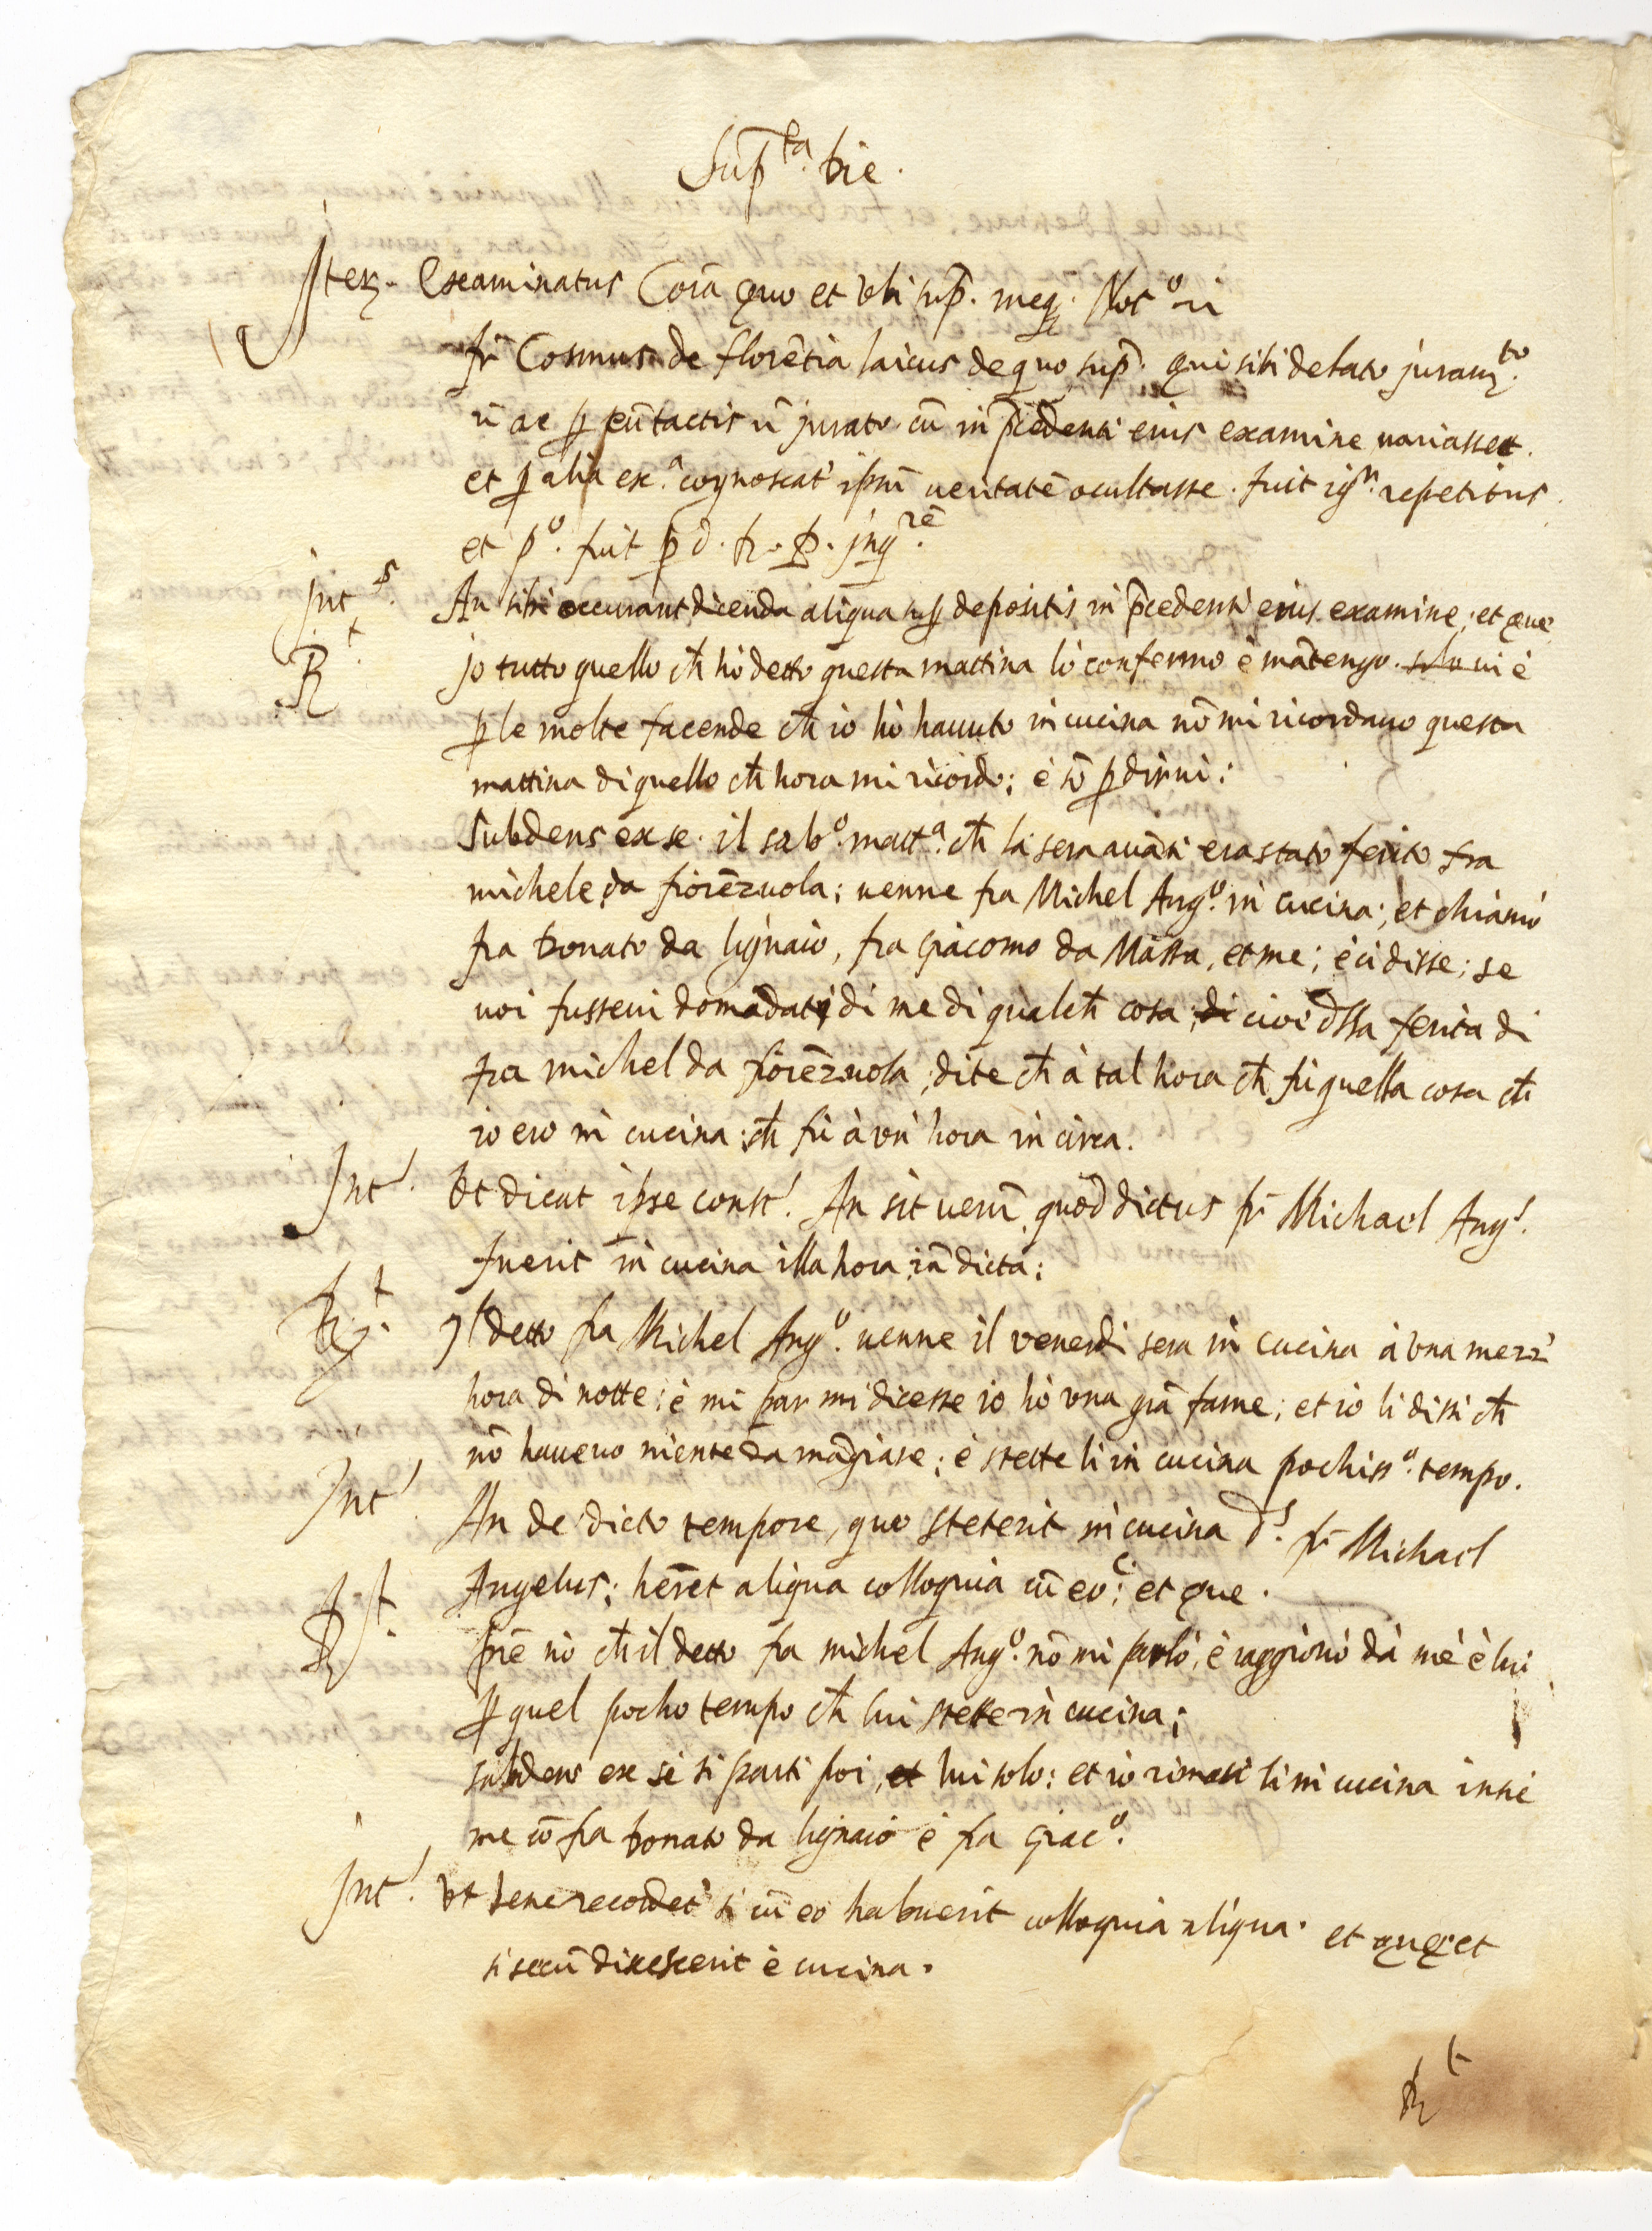 Sup.ta Die.
Iteꝝ. Examinatus Corā quo et vbi sup̄. meq. Not.o &
fr̄ Cosmus de florētia laicus de quo sup̄. qui sibi delato juram.to
& ac ꝑ eū tactis & jurato cū in p̄cedenti eius examine uariasset.
et ꝑ alia ex.a cognoscat' ipsū ueritatē ocultasse. fuit ig.r repetitus.
et p.o fuit p̄ d.
Int.s An sibi occurant dicenda aliqua depositis in p̄cedenti eius examine; et que
R.t jo tutto quello ch̄ hò detto questa mattina lò confermo è mātengo. ui è
ꝑ le molte facende ch̄ io hò hauuto in cucina nō mi ricordauo questa
mattina di quello ch̄ hora mi ricordo; è sō ꝑ dirui:
Subdens ex se. il sab.o matt.a ch̄ la sera auāti era stato ferito fra
michele da fiorēzuola; uenne fra Michel Ang.o in cucina; et chiamò
fra Donato da lignaio, fra Giacomo da Massa, et me; è ci disse; se
uoi fusseui domādati di me di qualch̄ cosa, di cioi dlla ferita di
fra michel da fiorēzuola; dite ch̄ à tal hora ch̄ fù quella cosa ch̄
io ero in cucina; ch̄ fù à vn' hora in circa.
Int.s Vt dicat ipse const.s An sit uerū, quod dictus fr̄ Michael Ang.s
fuerit in cucina illa hora iā dicta;
R.t Il detto fra Michel Ang.o uenne il venerdi sera in cucina à vna mezz'
hora di notte; è mi par mi dicesse io hò vna grā fame; et io li dissi ch̄
nō haueuo niente da māgiare; è stette li in cucina pochiss.o tempo.
Int.s An de dicto tempore, quo steterit in cucina d.s fr̄ Michael
Angelus; herēt aliqua colloquia cū eo; et que.
R.t Prē nò ch̄ il detto fra michel Ang.o nō mi parlò, è raggionò dà mè è lui
ꝑ quel pocho tempo ch̄ lui stette in cucina;
subdens ex se si parti poi, et lui solo; et io rimasi li in cucina insie
me cō fra Donato da lignaio è fra Giac.o
Int.s Vt bene recordet' si cū eo habuerit colloquia aliqua. et que; et
si secū discescerit è cucina.
R.t